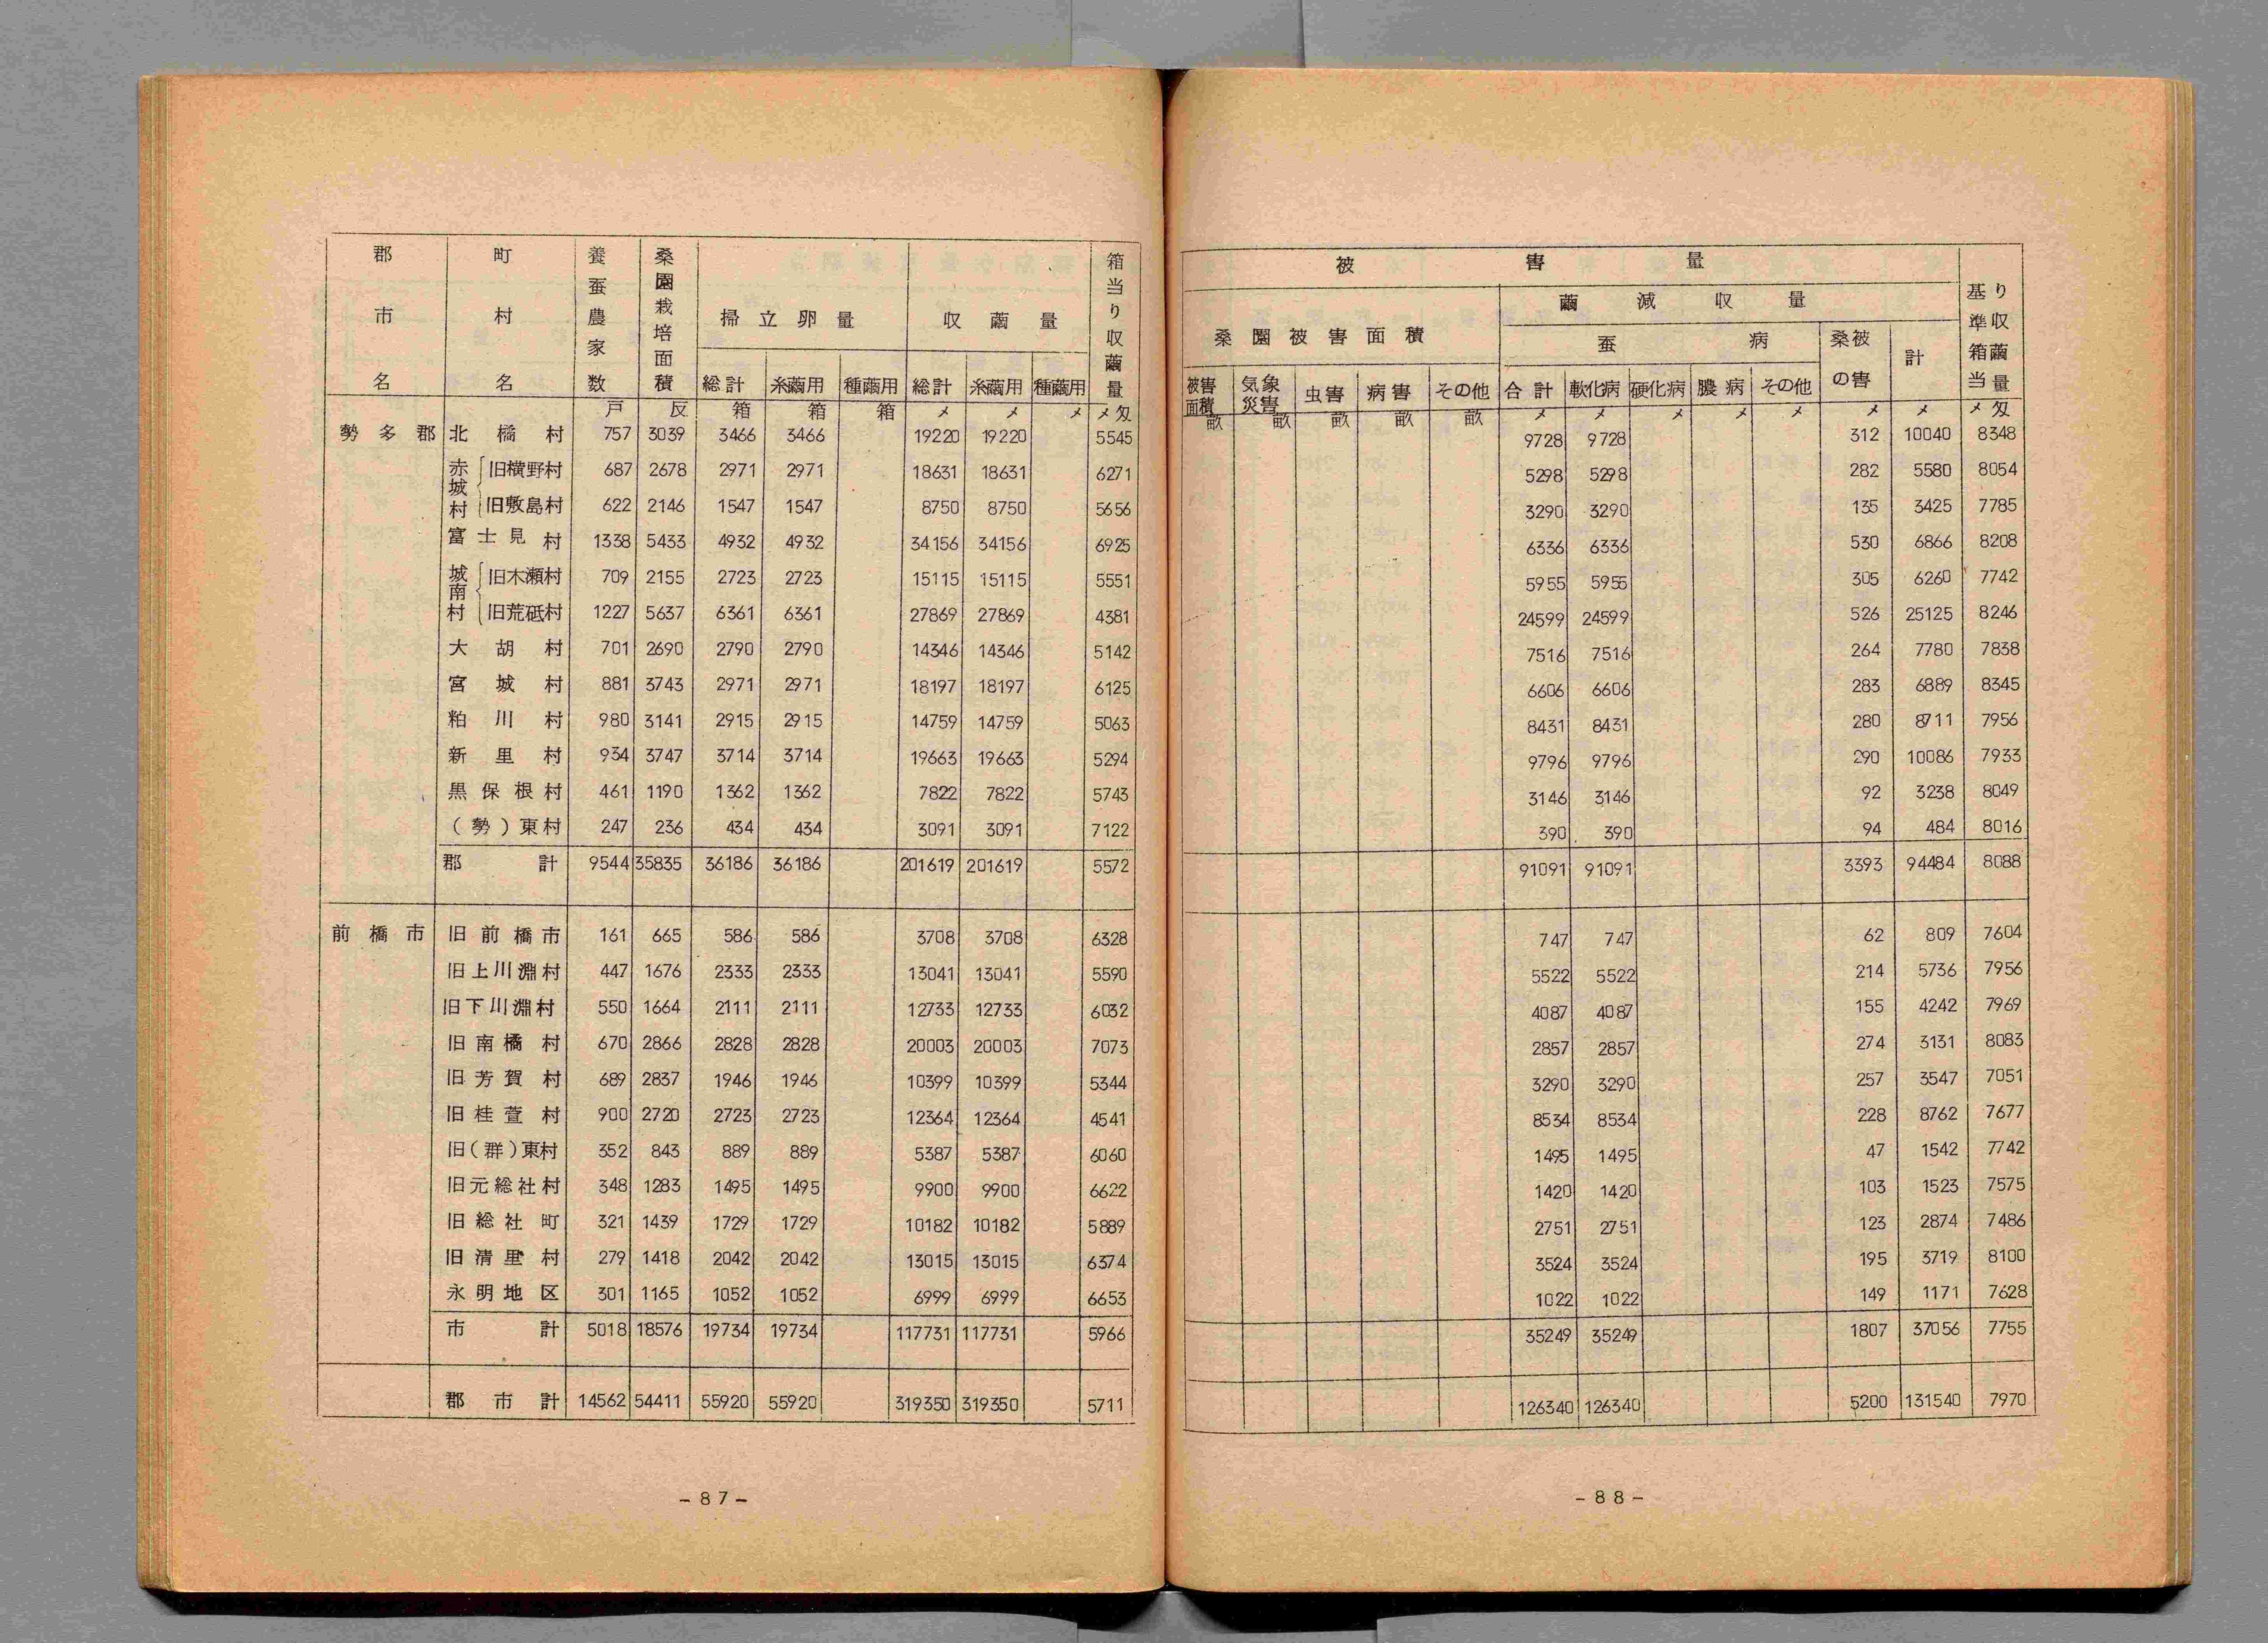 郡市名 町村名 養蚕農家数 桑園栽培面積 掃立卵量 収繭量 箱当り収繭量
総計 糸繭用 種繭用 総計 糸繭用 種繭用
戸 反 箱 箱 箱 メ メ メ メ匁
勢多郡 北橘村 757 3039 3466 3466 19220 19220 5545
赤城村 旧横野村 687 2678 2971 2971 18631 18631 6271
旧敷島村 622 2146 1547 1547 8750 8750 5656
富士見村 1338 5433 4932 4932 34156 34156 6925
城南村 旧木瀬村 709 2155 2723 2723 15115 15115 5551
旧荒砥村 1227 5637 6361 6361 27869 27869 4381
大胡村 701 2690 2790 2790 14346 14346 5142
宮城村 881 3743 2971 2971 18197 18197 6125
粕川村 980 3141 2915 2915 14759 14759 5063
新里村 934 3747 3714 3714 19663 19663 5294
黒保根村 461 1190 1362 1362 7822 7822 5743
(勢)東村 247 236 434 434 3091 3091 7122
郡計 9544 35835 36186 36186 201619 201619 5572
前橋市 旧前橋市 161 665 586 586 3708 3708 6328
旧上川淵村 447 1676 2333 2333 13041 13041 5590
旧下川淵村 550 1664 2111 2111 12733 12733 6032
旧南橘村 670 2866 2828 2828 20003 20003 7073
旧芳賀村 689 2837 1946 1946 10399 10399 5344
旧桂萱村 900 2720 2723 2723 12364 12364 4541
旧(群)東村 352 843 889 889 5387 5387 6060
旧元総社村 348 1283 1495 1495 9900 9900 6622
旧総社町 321 1439 1729 1729 10182 10182 5889
旧清里村 279 1418 2042 2042 13015 13015 6374
永明地区 301 1165 1052 1052 6999 6999 6653
市計 5018 18576 19734 19734 117731 117731 5966
郡市計 14562 54411 55920 55920 319350 319350 5711
-87-
被害量 基準箱当り収繭量
桑園被害面積 繭減収量
蚕病 桑被の害 計
被害面積 気象災害 虫害 病害 その他 合計 軟化病 硬化病 膿病 その他
畝 畝 畝 畝 畝 メ メ メ メ メ メ メ メ匁
9728 9728 312 10040 8348
5298 5298 282 5580 8054
3290 3290 135 3425 7785
6336 6336 530 6866 8208
5955 5955 305 6260 7742
24599 24599 526 25125 8246
7516 7516 264 7780 7838
6606 6606 283 6889 8345
8431 8431 280 8711 7956
9796 9796 290 10086 7933
3146 3146 92 3238 8049
390 390 94 484 8016
91091 91091 3393 94484 8088
747 747 62 809 7604
5522 5522 214 5736 7956
4087 4087 155 4242 7969
2857 2857 274 3131 8083
3290 3290 257 3547 7051
8534 8534 228 8762 7677
1495 1495 47 1542 7742
1420 1420 103 1523 7575
2751 2751 123 2874 7486
3524 3524 195 3719 8100
1022 1022 149 1171 7628
35249 35249 1807 37056 7755
126340 126340 5200 131540 7970
-88-